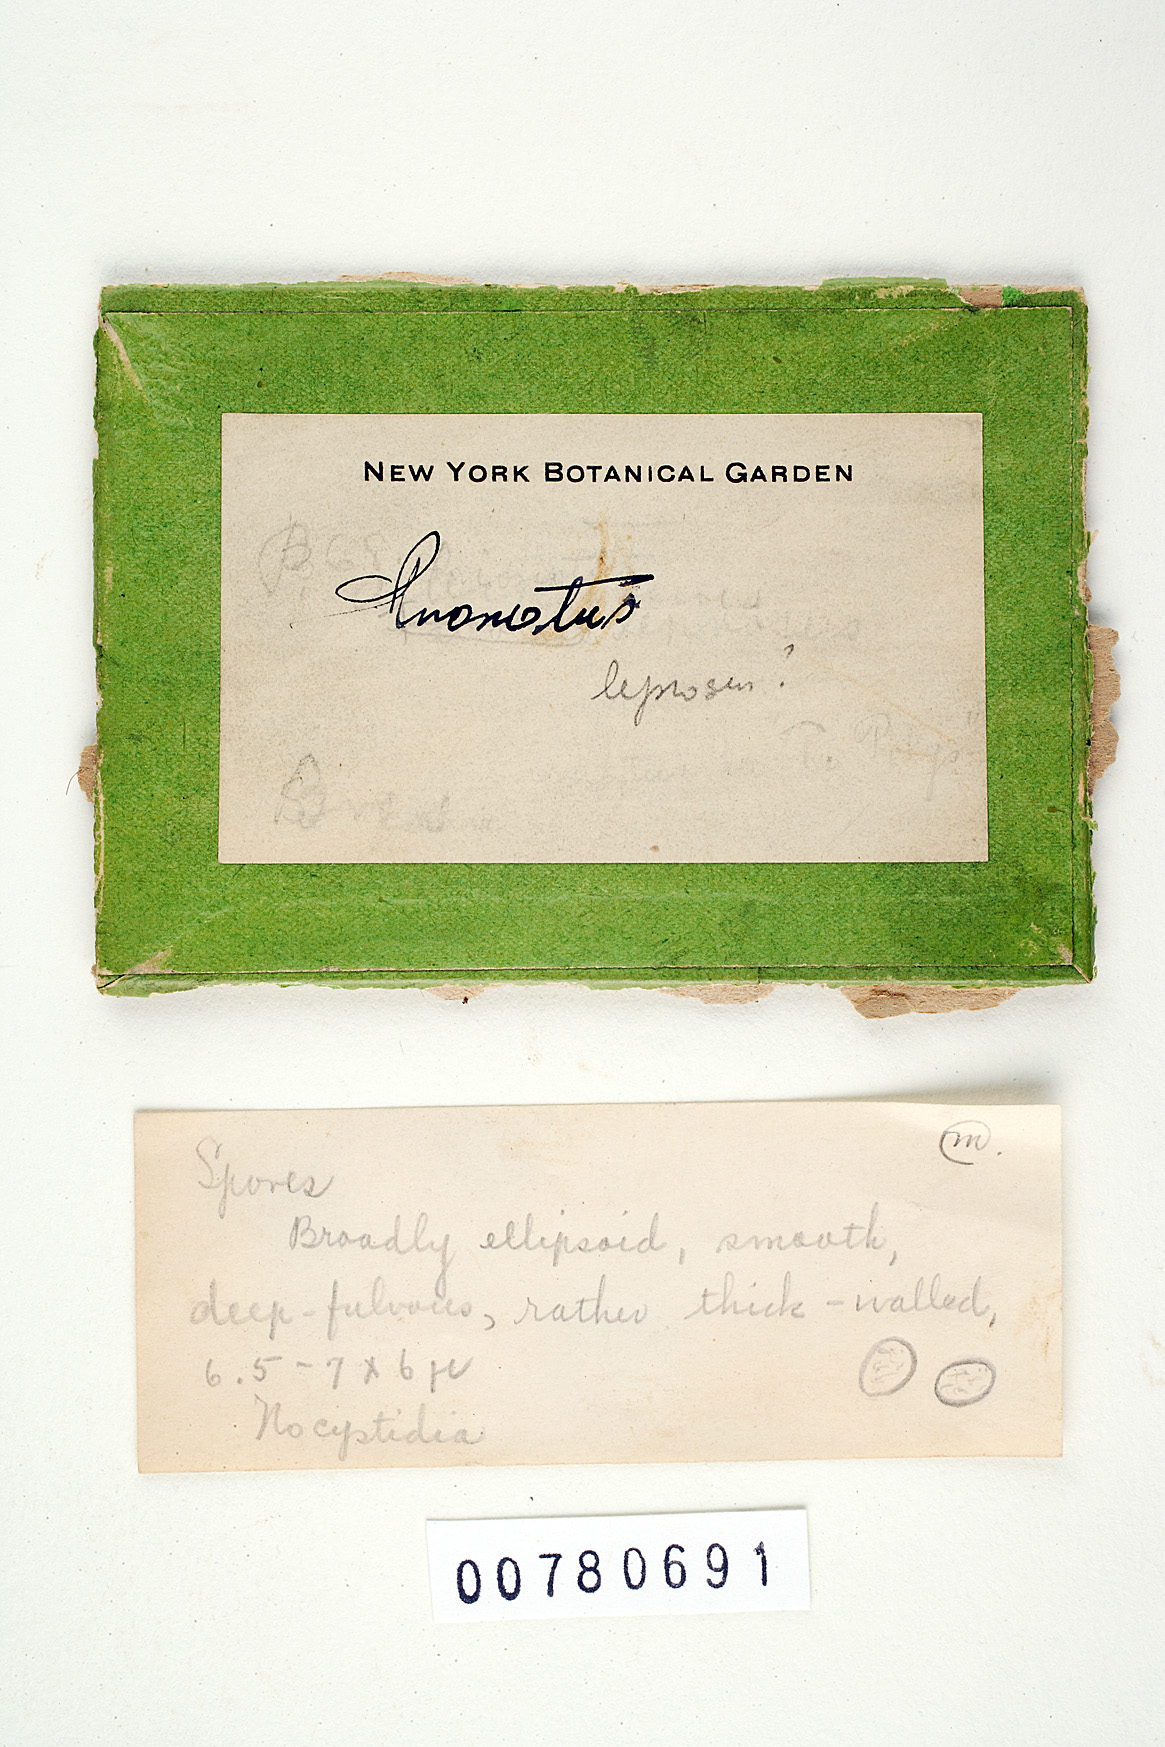 NEW YORK BOTANICAL GARDEN
Inonotus
leprosus?
m.
Spores
Broadly ellipsoid, smooth,
deep-fulvous, rather thick-walled,
6.5-7 x 6 µ
No cystidia
00780691